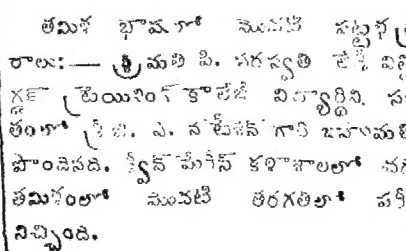 తమిళ భాషలో మొదటి పట్టభ
రాలు:— శ్రీమతి పి. సరస్వతి
ట్రెయినింగ్ కాలేజీ విద్యార్థిని.
శ్రీ జి. ఎ. నటేశన్ గారి బహుమతి
పొందినది. క్వీన్ మేరీస్ కళాశాలలో
తమిళంలో మొదటి తరగతిలో
నిచ్చింది.